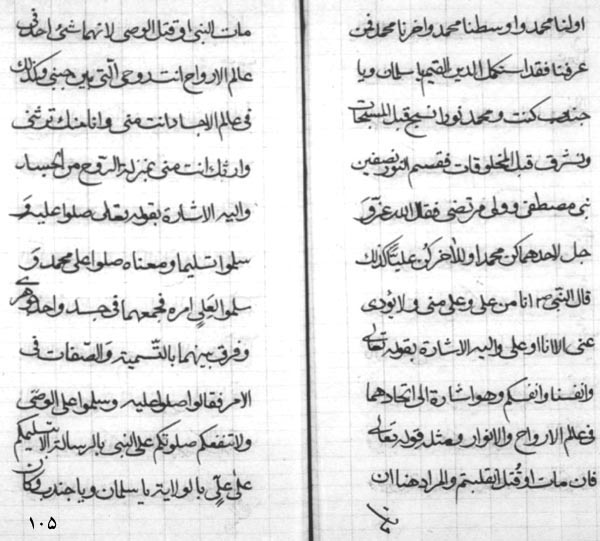 اولنا محمد و اوسطنا محمد و اخرنا محمد فمن
عرفنا فقد استكمل الدين القيم يا سلمان و يا
جندب كنت و محمد نورا نسبح قبل المسبحات
و نشرق قبل المخلوقات فقسم النور نصفين
نبى مصطفى و ولى مرتضى فقال الله عزّ و
جل لاحدهما كن محمدا و للآخر كن عليّاً كذلك
قال النبى ص انا من على و على منى و لا يؤدى
عنى الا انا او على و اليه الاشارة بقوله تعالى
و انفسنا و انفسكم و هو اشارة الى اتحادهما
فى عالم الارواح و الانوار و مثله قوله تعالى
فان مات او قُتل انقلبتم و المراد هنا ان
مات
مات النبى او قتل الوصى لانهما شئ واحد فى
عالم الارواح انت روحى الّتى بين جنبىّ و كذلك
فى عالم الاجساد انت منى و انا منك ترثنى
و ارثك انت منى بمنزلة الروح من الجسد
و اليه الاشارة بقوله تعالى صلوا عليه و
سلموا تسليما و معناه صلوا على محمد و
سلموا لِعَلىٍ امره فجمعهما فى جسد واحد جوهرى
و فرق بينهما بالتّسمية و الصّفات فى
الامر فقال صلوا عليه و سلموا على الوصّى
و لا تنفعكم صلوتكم على النبى بالرسالة الا بتسليمكم
على علىّ بالولاية يا سلمان و يا جندب و كان
۱۰۵